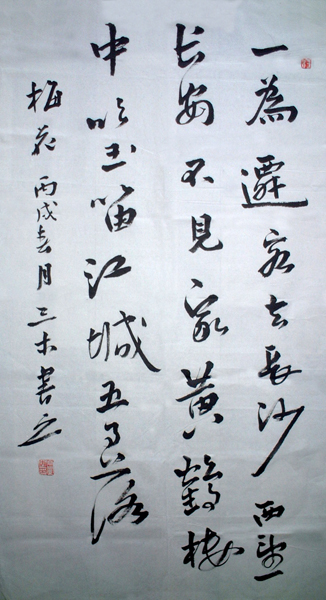 一為遷客去長沙西望
长安不見家黃鶴楼
中吹玉笛江城五月落
梅花丙戌春月三木書之